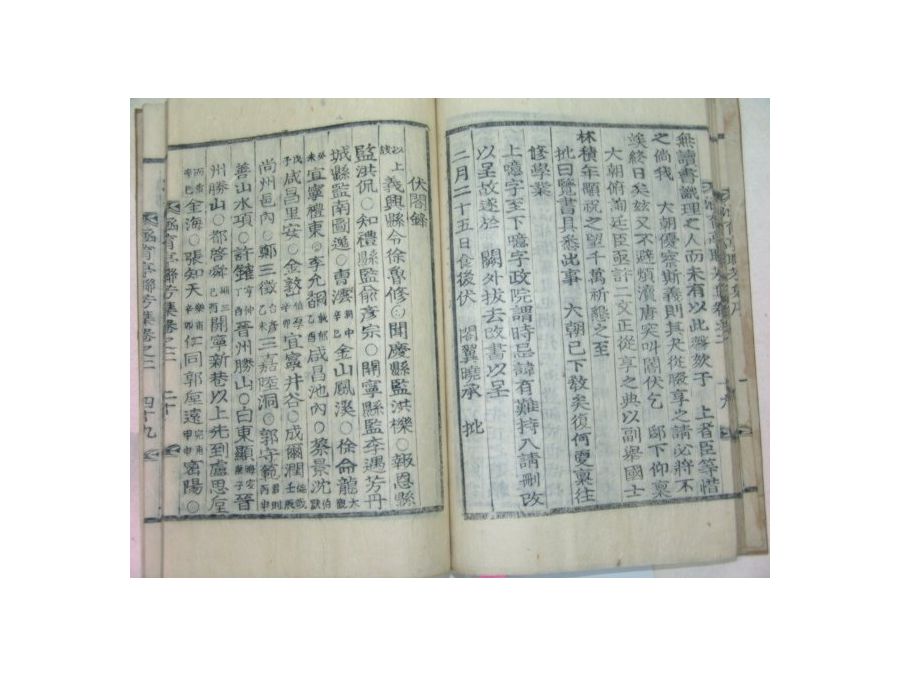 無讀書識理之人而未有以此薦於子　上者臣等惜
之倘我　大朝優察斯義則其夬從腏享之請必將不
竢終日矣玆又不避煩瀆唐突叫閤伏乞　邸下仰稟
大朝俯詢廷臣亟許二文正從享之典以副舉國士
林積年顒祝之望千萬祈懇之至
批曰覽書具悉此事　大朝已下敎矣復何更稟往
修學業
上噫字至下噫字政院謂時忌諱有難持入請刪改
以呈故遂於　闕外拔去改書以呈
二月二十五日食後伏　閤翼曉承　批
伏閤錄
上　義興縣令徐魯修○聞慶縣監洪櫟○報恩縣
監洪侃○知禮縣監兪彥宗○開寧縣監李遇芳丹
城縣監南圖遁○曺澐　金山鳳溪○徐命龍
宜寧禮東○李允　咸昌池內○蔡景沈
咸昌里安○金　宜寧井谷○成爾潤
尙州邑內○鄭三徵　三嘉陸洞○郭守範
善山水項○許　晉州勝山○白東顯　晉
州勝山○都啓舜　開寧新巷以上先到盧思垕
金海○張知天　仁同郭垕遠　密陽○
涵育亭聯芳集卷之二　二十　四十九